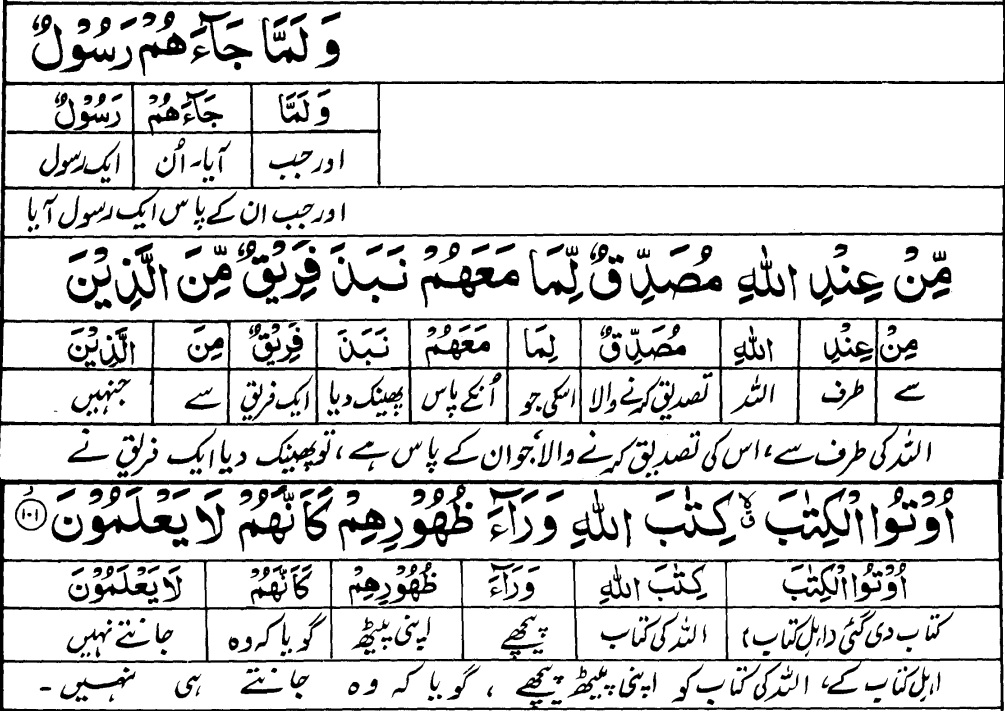 وَ لَمَّا جَآءَهُمْ رَسُوْلٌ
وَ لَمَّا جَآءَهُمْ رَسُوْلٌ
اور جب آیا۔ اُن ایک رسول
اور جب ان کے پاس ایک رسول آیا
مِّنْ عِنْدِ اللهِ مُصَدِّقٌ لِّمَا مَعَهُمْ نَبَذَ فَرِيْقٌ مِّنَ الَّذِيْنَ
مِنْ عِنْدِ اللهِ مُصَدِّقٌ لِمَا مَعَهُمْ نَبَذَ فَرِيْقٌ مِنَ الَّذِيْنَ
سے طرف اللہ تصدیق کرنے والا اسکی جو اُنکے پاس پھینک دیا ایک فریق سے جنہیں
اللہ کی طرف سے، اس کی تصدیق کرنے والا جو ان کے پاس ہے، تو پھینک دیا ایک فریق نے
اُوْتُوا الْكِتٰبَ ۙ كِتٰبَ اللهِ وَرَآءَ ظُهُوْرِهِمْ كَاَنَّهُمْ لَا يَعْلَمُوْنَ ۱۰۱
اُوْتُوا الْكِتٰبَ كِتٰبَ اللهِ وَرَآءَ ظُهُوْرِهِمْ كَاَنَّهُمْ لَا يَعْلَمُوْنَ
کتاب دی گئی (اہل کتاب) اللہ کی کتاب پیچھے اپنی پیٹھ گویا کہ وہ جانتے نہیں
اہل کتاب کے، اللہ کی کتاب کو اپنی پیٹھ پیچھے، گویا کہ وہ جانتے ہی نہیں۔